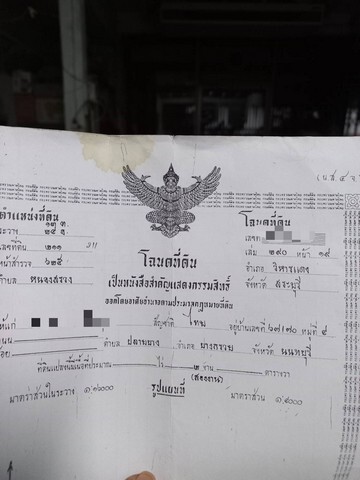 (น.ส. ๔ จ.)
ตำแหน่งที่ดิน
โฉนดที่ดิน
ระวาง
เลขที่
เลขที่ดิน ๒๑๑
โฉนดที่ดิน
เล่ม ๒๙๐ หน้า ๑๙
หน้าสำรวจ ๖๒๕
เป็นหนังสือสำคัญแสดงกรรมสิทธิ์
อำเภอ วิหารแดง
ตำบล หนองสรวง
ออกโดยอาศัยอำนาจตามประมวลกฎหมายที่ดิน
จังหวัด สระบุรี
ให้แก่
สัญชาติ ไทย อยู่บ้านเลขที่ ๖๗/๗๐ หมู่ที่ ๔
ถนน
ตำบล ปลายบาง อำเภอ บางกรวย จังหวัด นนทบุรี
ที่ดินแปลงนี้มีเนื้อที่ประมาณ ไร่ ๒ งาน ตารางวา
(สองงาน)
มาตราส่วนในระวาง
รูปแผนที่
มาตราส่วน